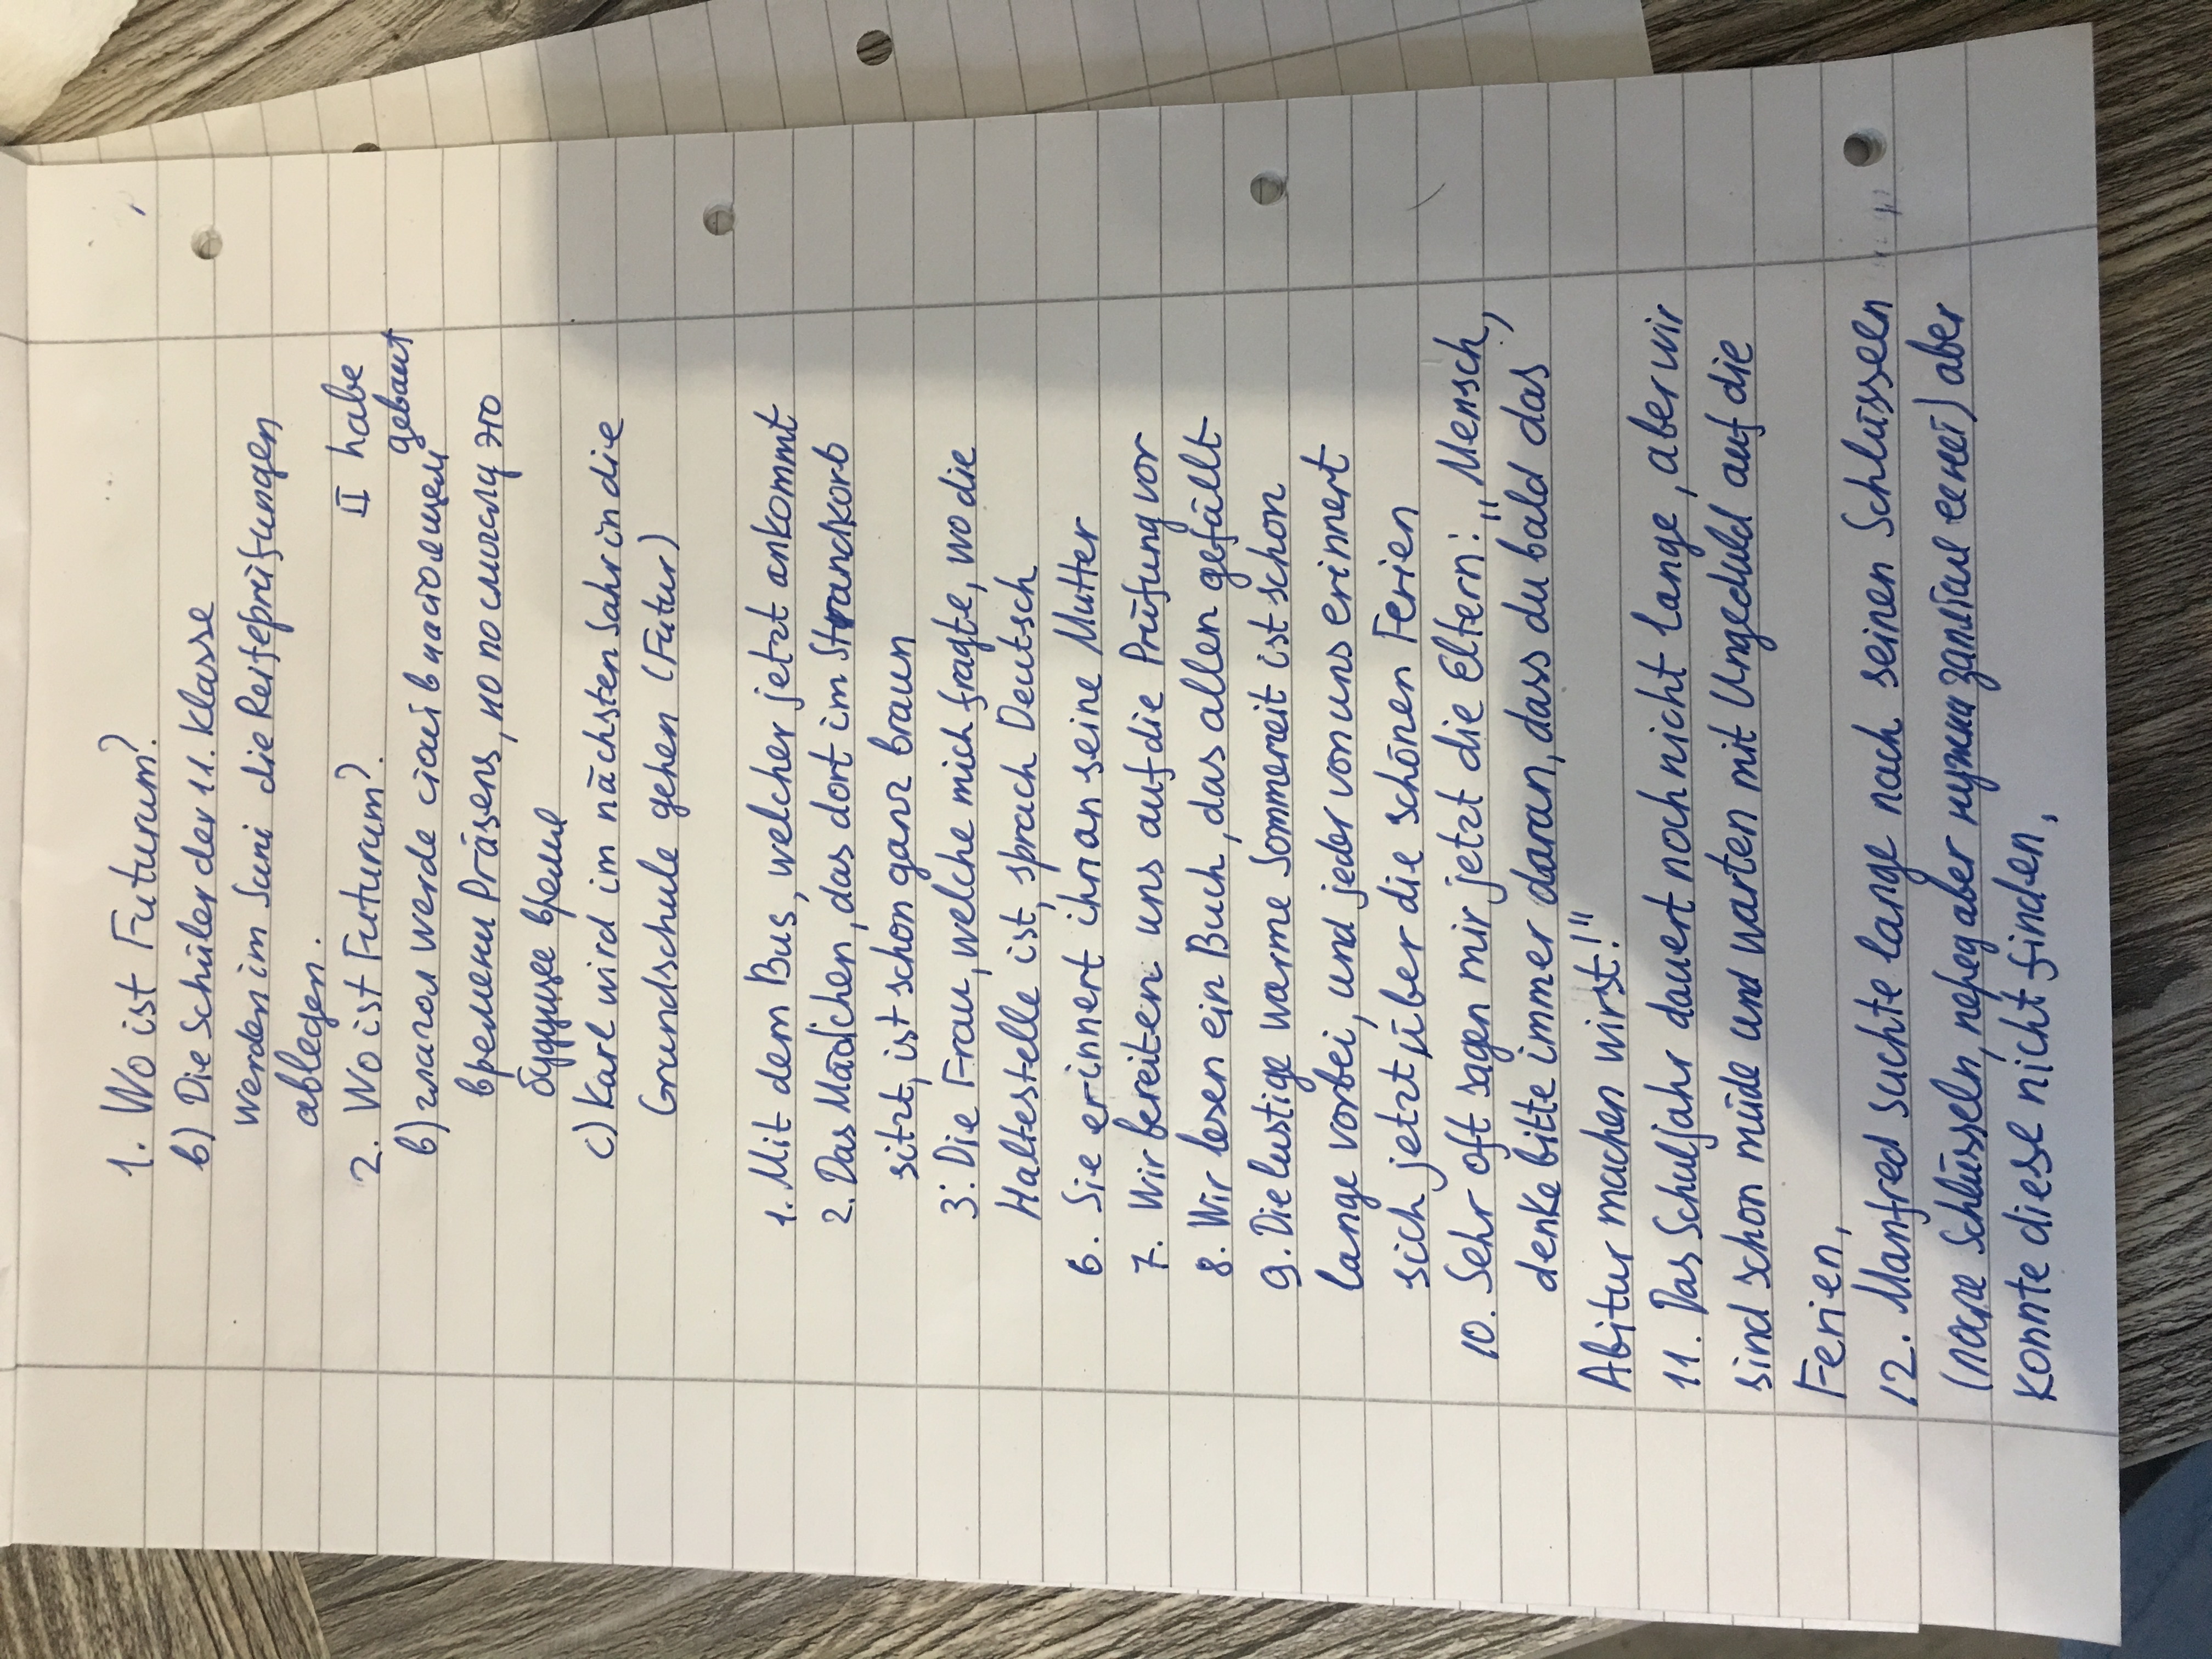 1. Wo ist Futurum?
b) Die Schüler der 11. Klasse
werden im Juni die Reifeprüfungen
ablegen.
2. Wo ist Futurum?
II habe
gebaut
b) глагол werde стоит в настоящем
времени Präsens, но по смыслу это
будущее время
c) Karl wird im nächsten Jahr in die
Grundschule gehen (Futur)
1. Mit dem Bus, welcher jetzt ankommt
2. Das Mädchen, das dort im Strandkorb
sitzt, ist schon ganz braun
3. Die Frau, welche mich fragte, wo die
Haltestelle ist, sprach Deutsch
6. Sie erinnert ihn an seine Mutter
7. Wir bereiten uns auf die Prüfung vor
8. Wir lesen ein Buch, das allen gefällt
9. Die lustige warme Sommerzeit ist schon
lange vorbei, und jeder von uns erinnert
sich jetzt über die schönen Ferien
10. Sehr oft sagen mir jetzt die Eltern: „Mensch,
denke bitte immer daran, dass du bald das
Abitur machen wirst!"
11. Das Schuljahr dauert noch nicht lange, aber wir
sind schon müde und warten mit Ungeduld auf die
Ferien,
12. Manfred suchte lange nach seinen Schlüsseln
(после Schlüsseln, перед aber нужна запятая ее нет) aber
konnte diese nicht finden,